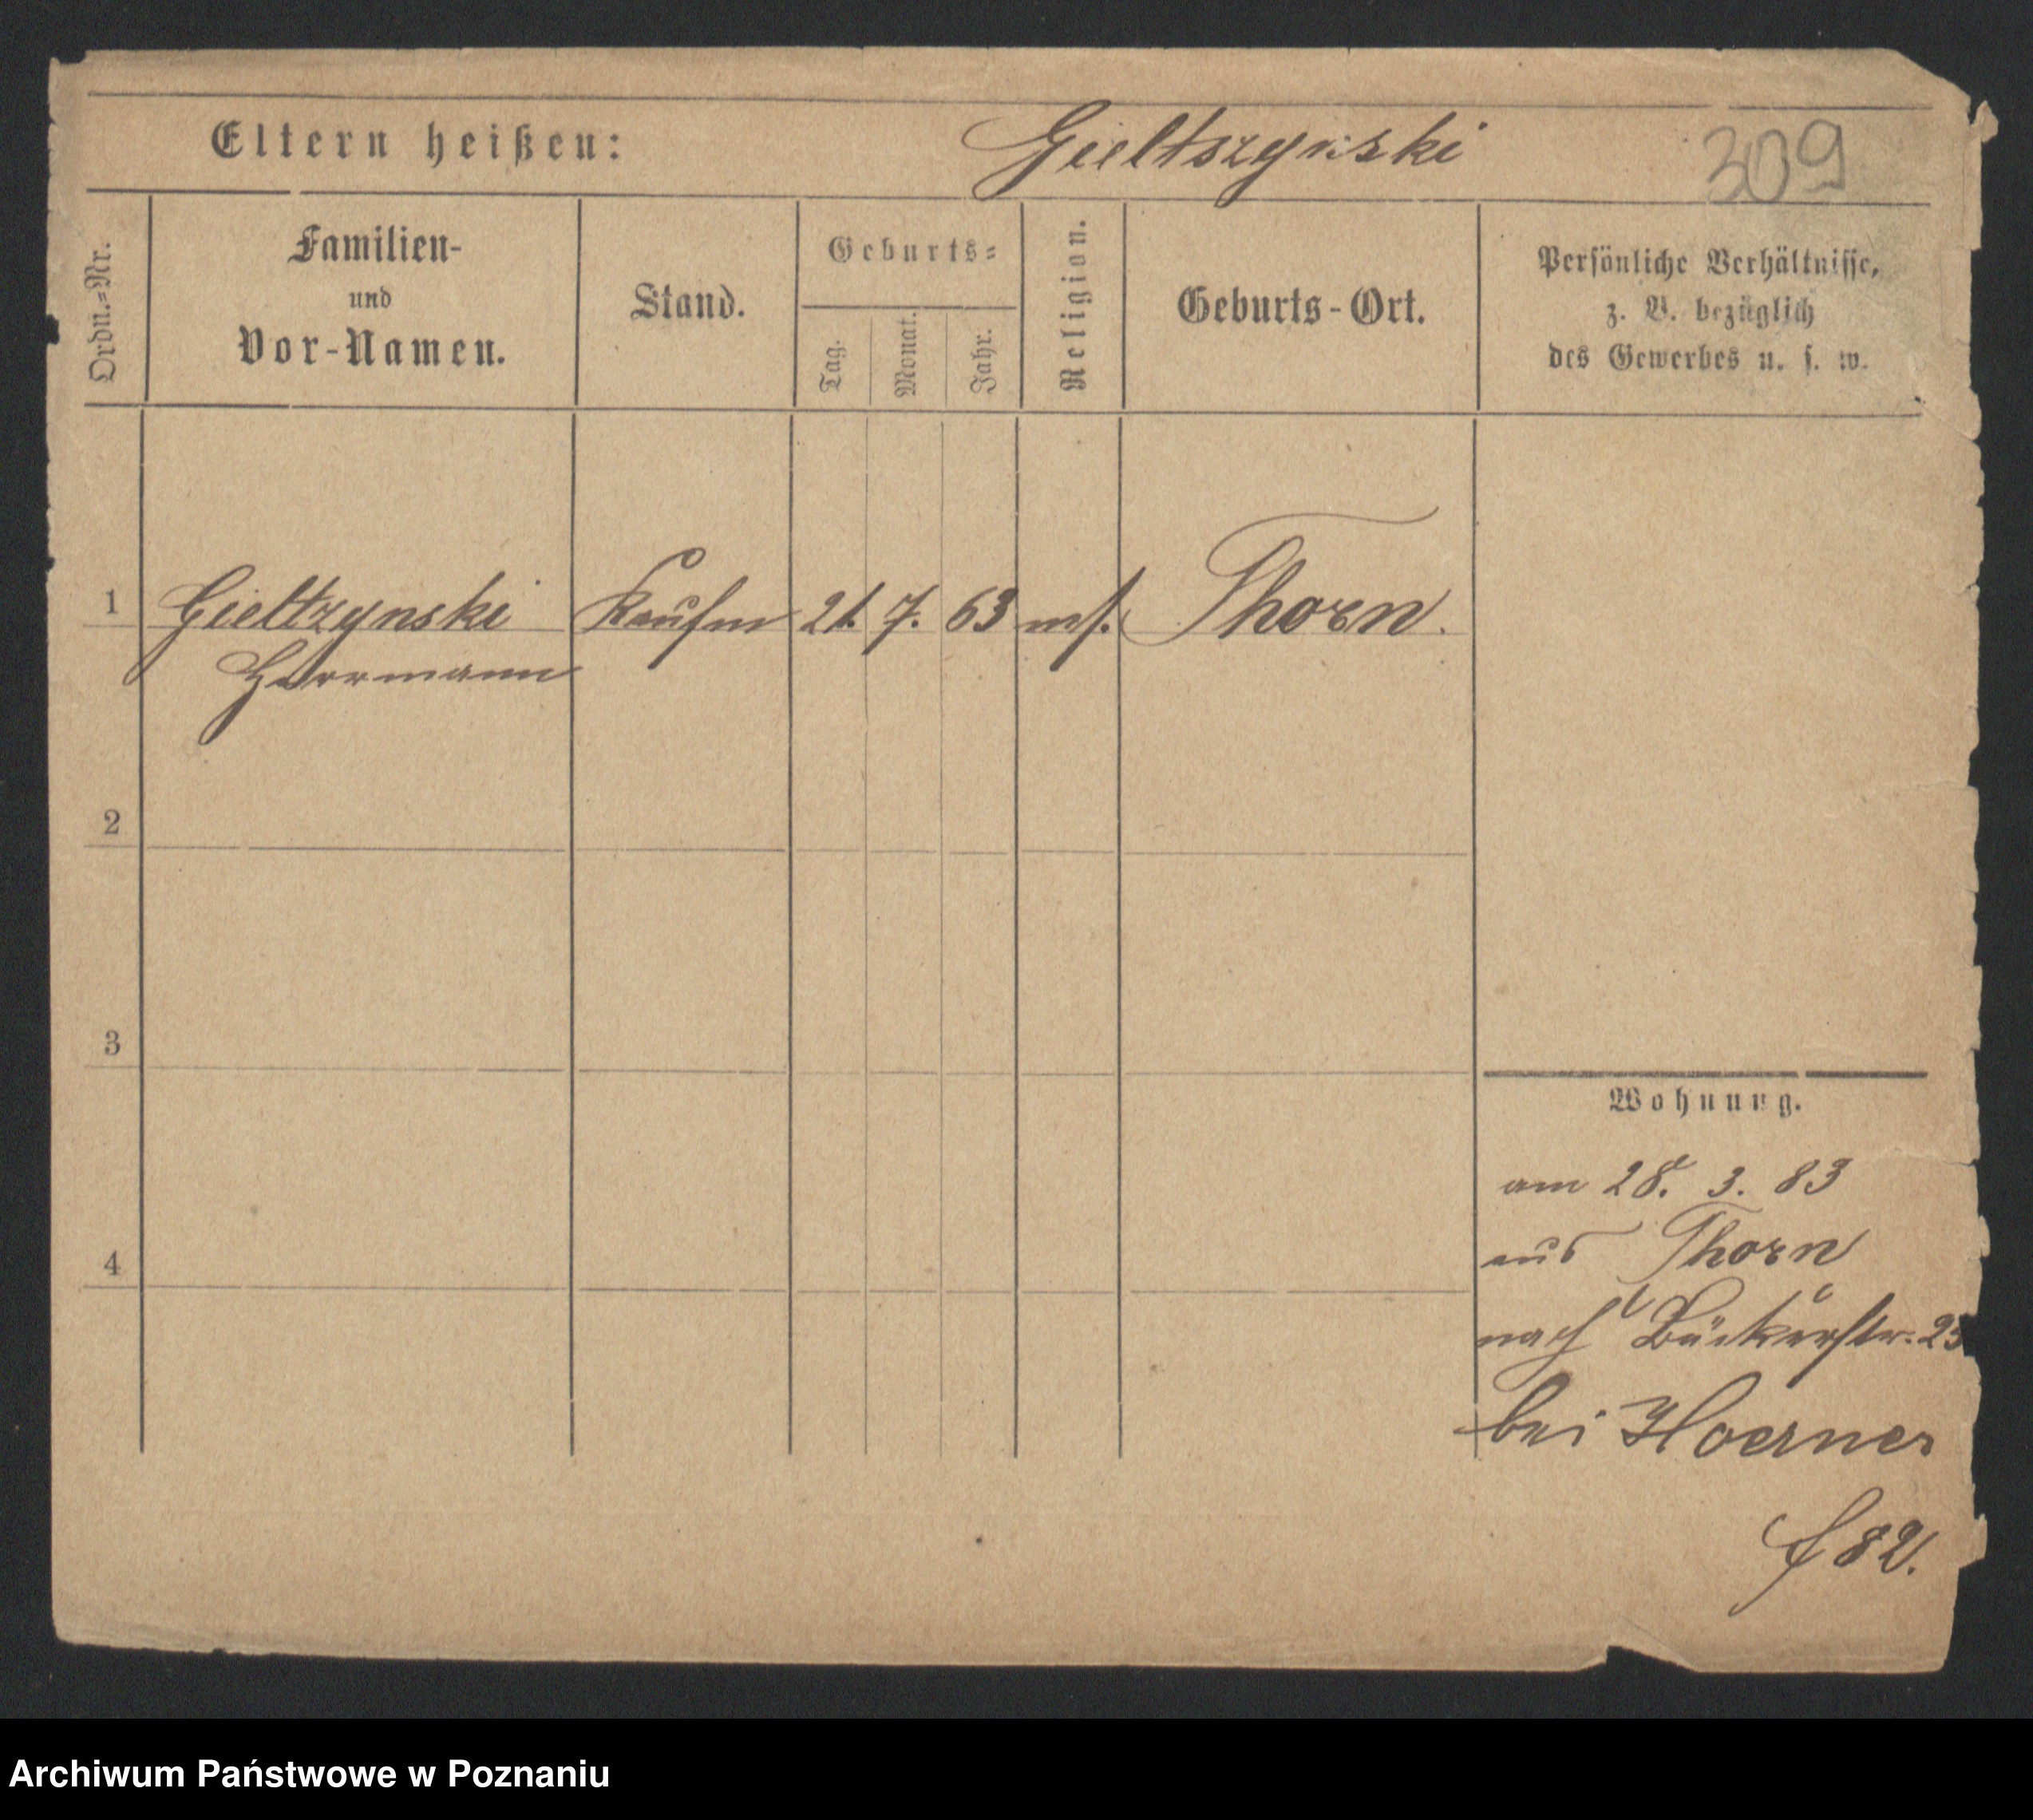 Eltern heißen: Gieltszynski 309
Ordn.=Nr.
Familien-
und
Vor-Namen.
Stand.
Geburts=
Tag.
Monat.
Jahr.
Religion.
Geburts-Ort.
Persönliche Verhältnisse,
z. B. bezüglich
des Gewerbes u. s. w.
1 Gieltzynski Kaufm 21. 7. 63 mos. Thorn.
Herrmann
2
3
4
Wohnung.
am 28. 3. 83
aus Thorn
nach Bäckerstr. 25
bei Hoerner
f 82.
Archiwum Państwowe w Poznaniu